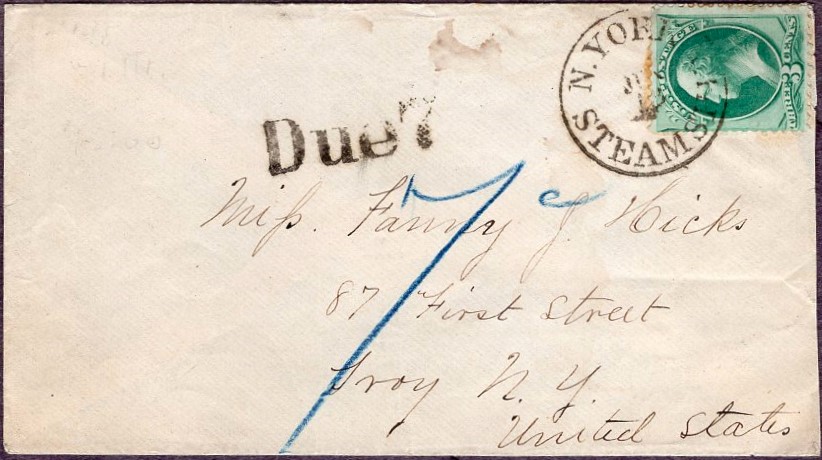 N. YORK
STEAMSHIP
Due 7
7 c
Miss. Fanny J. Hicks
87 First Street
Troy N. Y.
United States